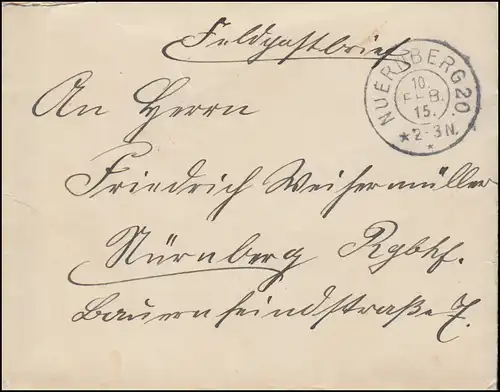 Feldpostbrief
NUERNBERG 20.
10.
FEB.
15.
★ 2-3 N. ★
An Herrn
Friedrich Weihermüller
Nürnberg Rgbhf.
Bauernfeindstraße 7.